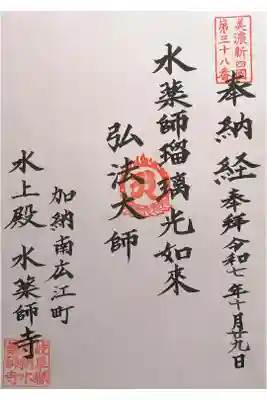 美濃新四国
第三十八番
奉納経
奉拝令和七年十月廿九日
水薬師瑠璃光如来
弘法大師
加納南広江町
水上殿 水薬師寺